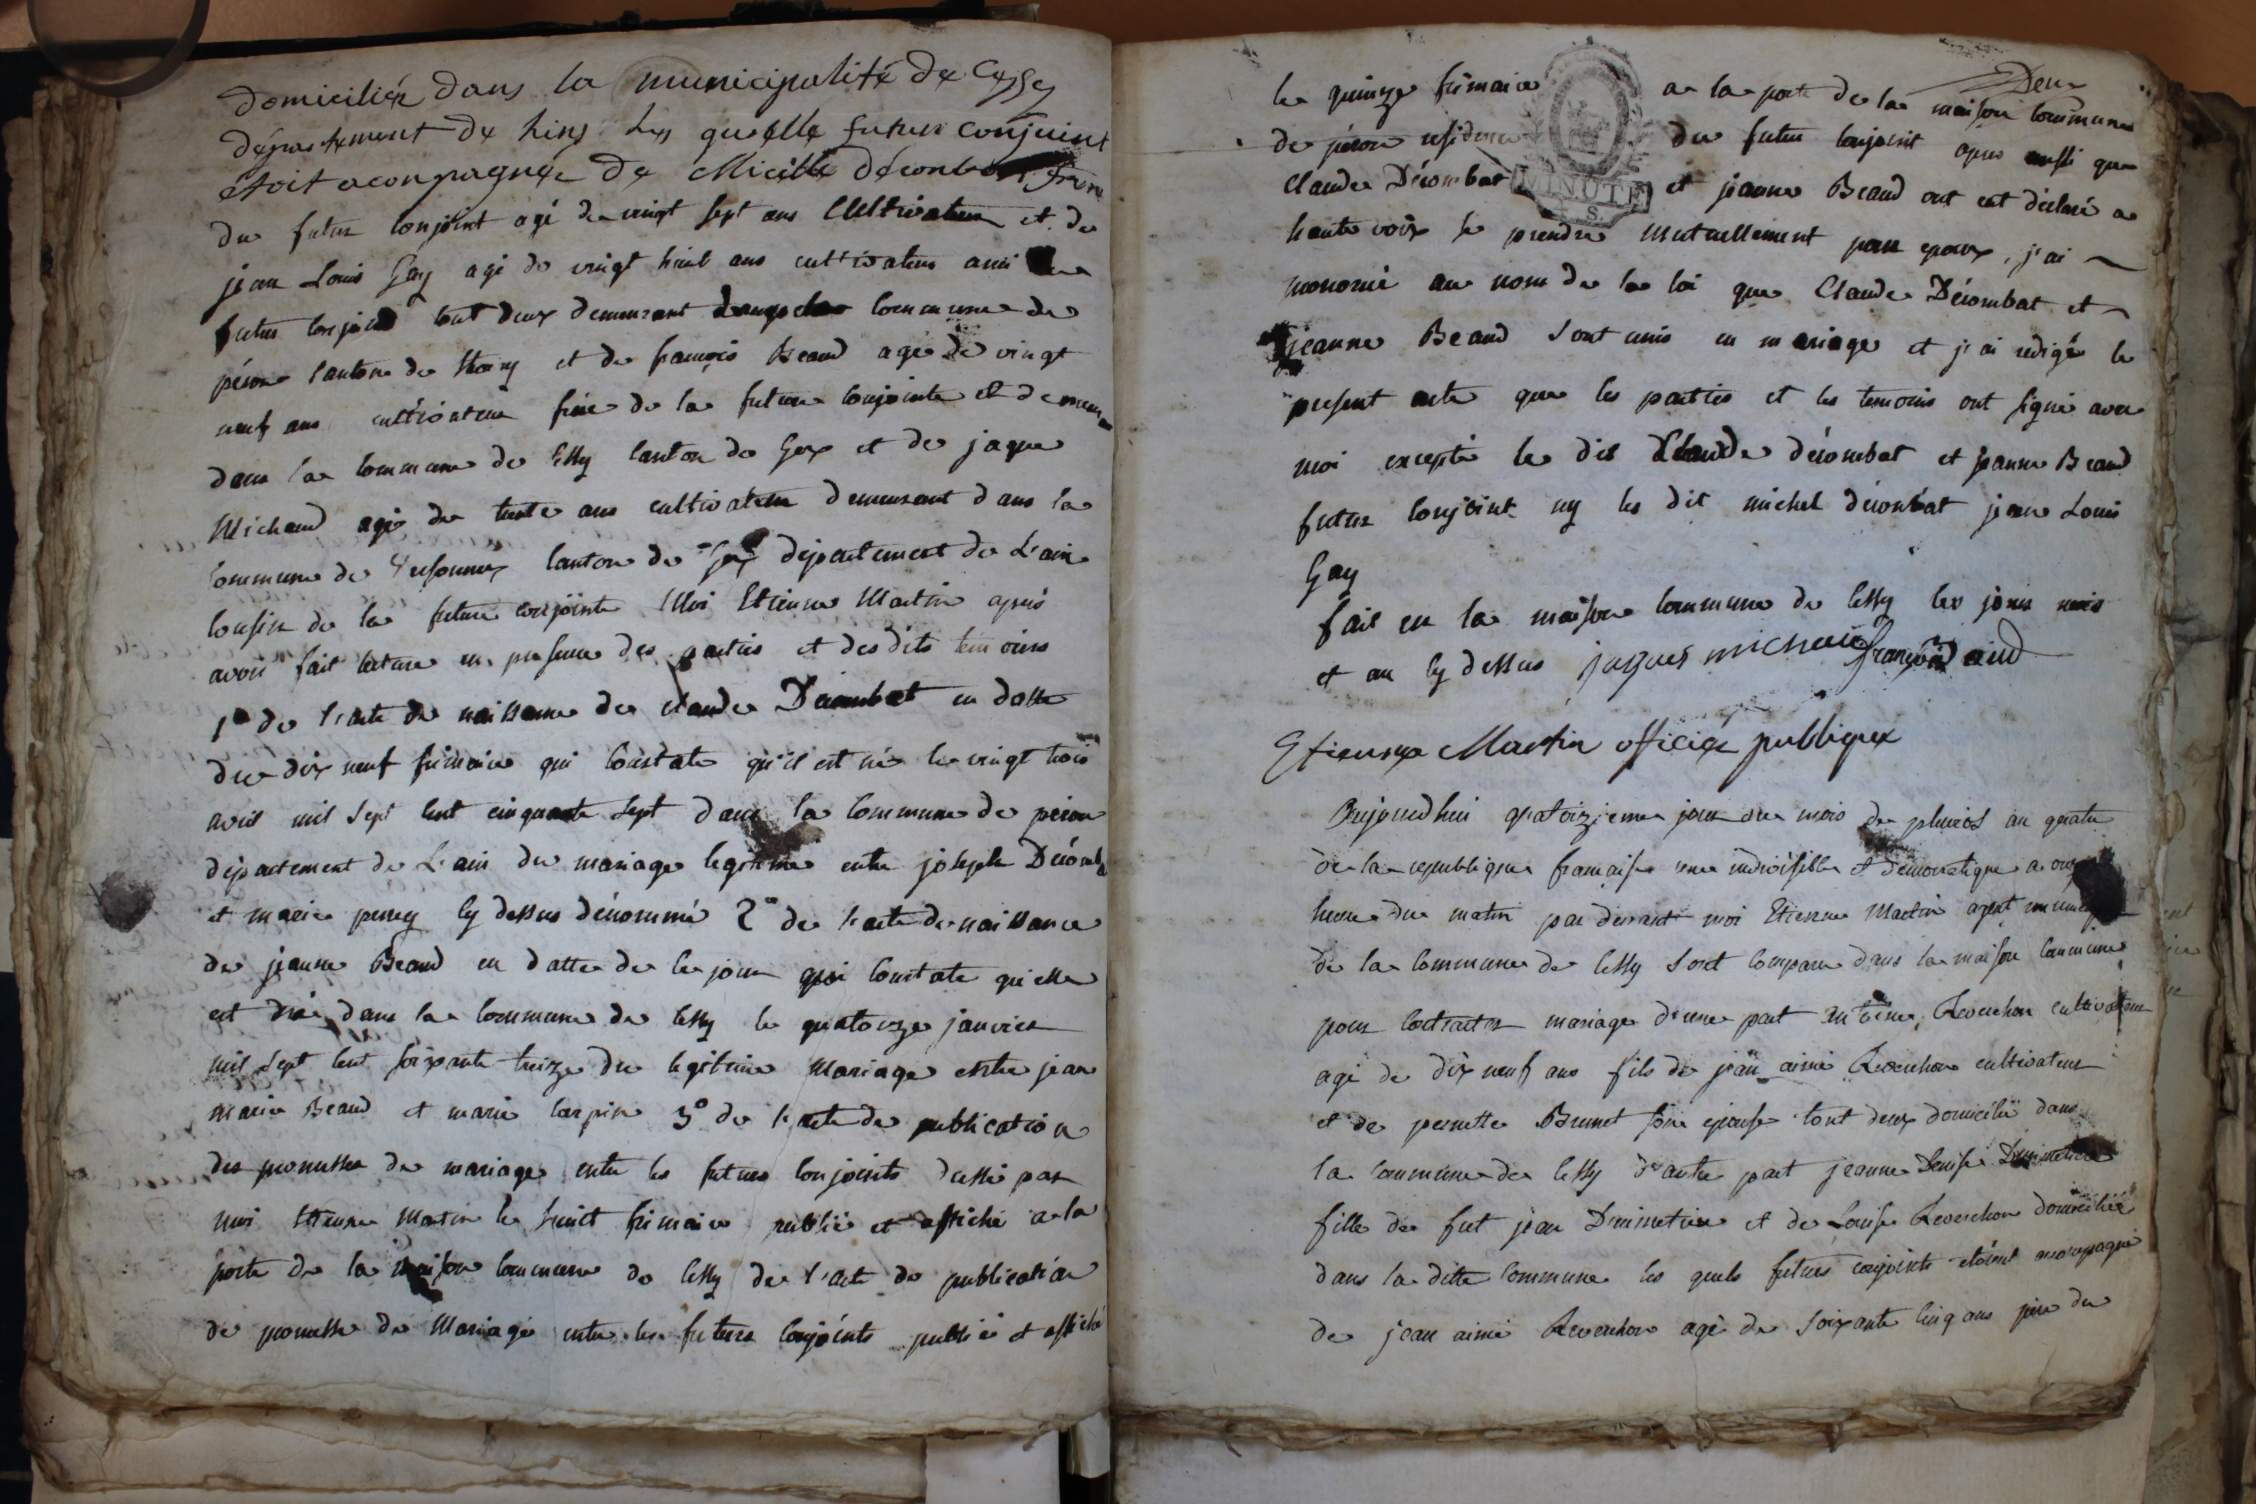 domiciliéz dans la municipalité de Cessy
département de Lins Les quelle futur conjoint
étoit acompagnéz de Micille décombat frere
du futur conjoint agé de vingt sept ans Cultivateur et de
jean Louis Gay agé de vingt huit ans cultivateur ami du
futur conjoint tout deux demeurant commune de
péron canton de Thoiry et de françois Beaud agé de vingt
neuf ans cultivateur frere de la future conjointe et demeurant
dans la commune de Cessy canton de Gex et de jaque
Michaud agé de trente ans cultivateur demeurant dans la
commune de Versonnex canton de Gex département de L'ain
cousin de la future conjointe Moi Etienne Martin après
avoir fait lecture en presence des parties et des dits temoins
1º de l'acte de naissance de claude Décombat en datte
du dix neuf frimaire qui constate qu'il est né le vingt trois
avril mil sept cent cinquante sept dans la commune de péron
département de L'ain du mariage legitime entre joseph Décombat
et marie perrey cy dessus dénommé 2º de l'acte de naissance
de jeanne Beaud en datte de ce jour qui constate qu'elle
est née dans la commune de Cessy le quatorze janvier
mil sept cent soixante treize du legitime Mariage entre jean
marie Beaud et marie carpin 3º de l'acte de publication
des promesses de mariage entre les futurs conjoints dressé par
moi Etienne Martin le huit frimaire publié et affiché a la
porte de la maison commune de Cessy de l'acte de publication
de promesse de Mariage entre les futurs conjoints publié et affiché
Deux
le quinze frimaire a la porte de la maison commune
de péron residence du futur conjoint après aussi que
Claude Décombat et jeanne Beaud ont eut déclaré a
MINUTE
S.
haute voix se prendre mutuellement pour epoux, j'ai
prononcé au nom de la loi que Claude Décombat et
jeanne Beaud sont unis en mariage et j'ai redigé le
present acte que les parties et les temoins ont signé avec
moi excepté le dit Claude décombat et jeanne Beaud
futur conjoint ny les dit michel décombat jean Louis
Gay
fait en la maison commune de Cessy les jour mois
et an cy dessus jaques michaud françois
Etienne Martin officier publique
Aujourdhui quatorzieme jour du mois de pluviôs an quatre
de la republique française une indivisible et democratique a onze
heure du matin par devant moi Etienne Martin agent municipal
de la commune de Cessy sont comparu dans la maison commune
pour contracter mariage d'une part antoine Reverchon cultivateur
agé de dix neuf ans fils de jean aimé Reverchon cultivateur
et de pernette Brunet son epouse tout deux domicilié dans
la commune de Cessy d'autre part jeanne Denise
fille de fut jean Dimmetier et de Louise Reverchon domiciliée
dans la ditte commune les quels futurs conjoints etoient acompagné
de jean aimé Reverchon agé de soixante cinq ans père du